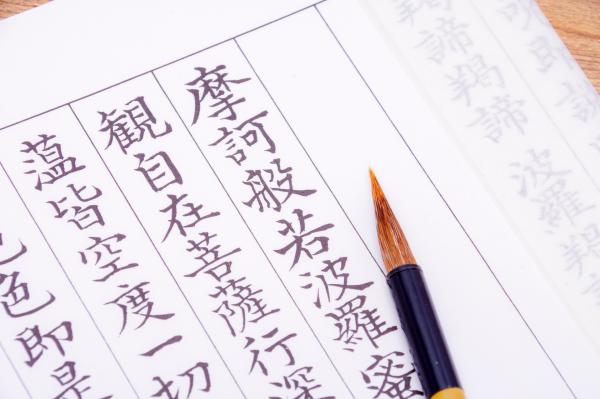 呪即
羯諦羯諦 波羅羯諦
摩訶般若波羅蜜
観自在菩薩行深
薀皆空度一切
色即是